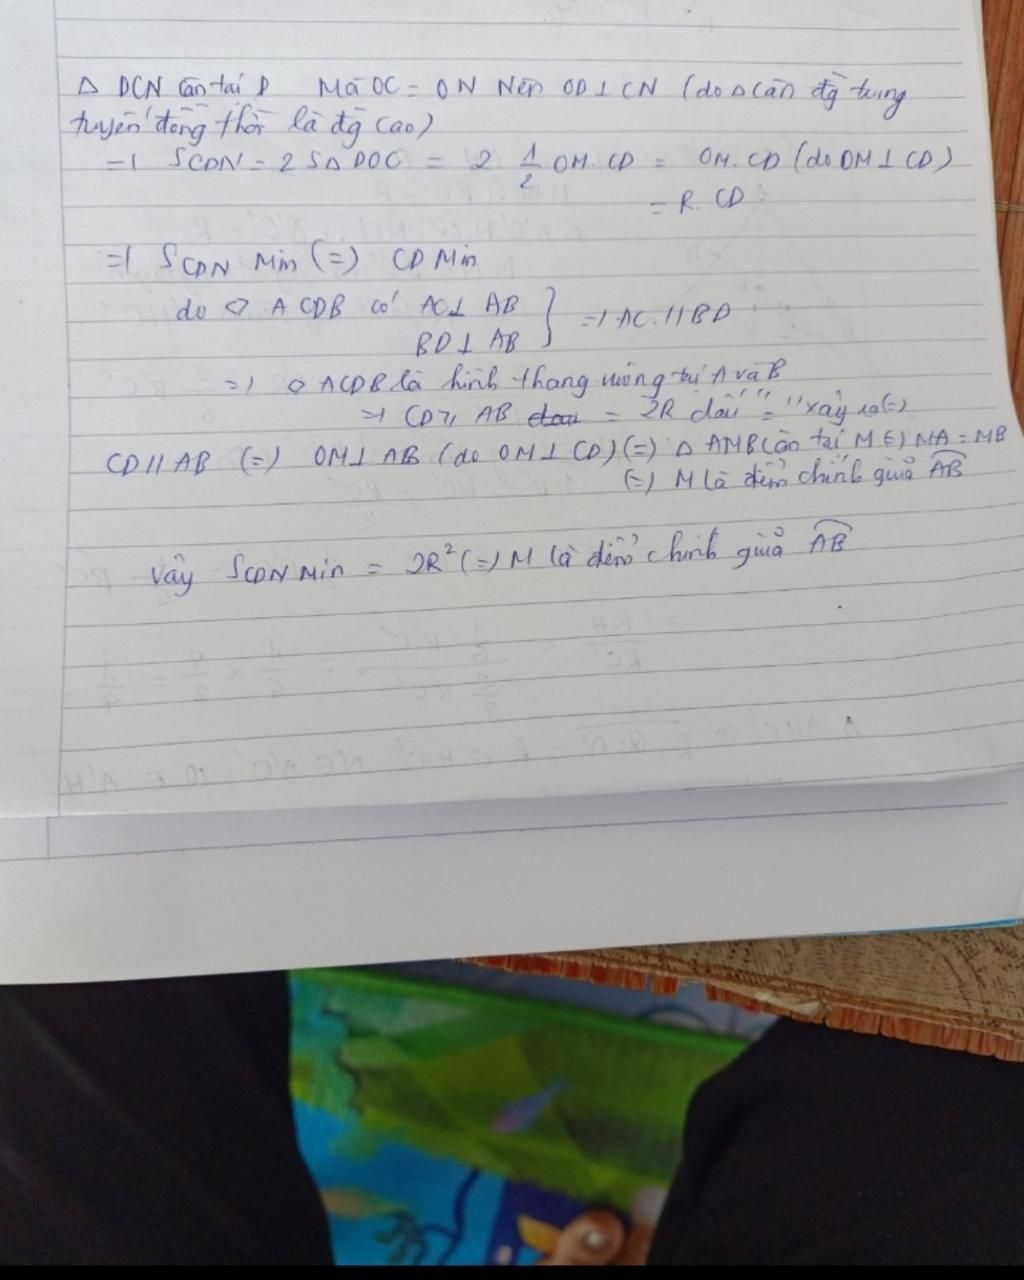 Δ DCN cân tại D Mà OC = ON Nên OD ⊥ CN (do Δ cân đg trung
tuyến đồng thời là đg cao)
=) SCDN = 2 SΔDOC = 2. 1/2 OM. CD = OM. CD (do OM ⊥ CD)
= R. CD
=) SCDN Min (=) CD Min
do ◊ ACDB có AC ⊥ AB
BD ⊥ AB } =) AC // BD
=) ◊ ACDB là hình thang vuông tại A và B
=) CD ≥ AB = 2R dấu "=" xảy ra (=)
CD // AB (=) OM ⊥ AB (do OM ⊥ CD) (=) Δ AMB cân tại M (=) MA = MB
(=) M là điểm chính giữa AB
Vậy SCDN Min = 2R² (=) M là điểm chính giữa AB